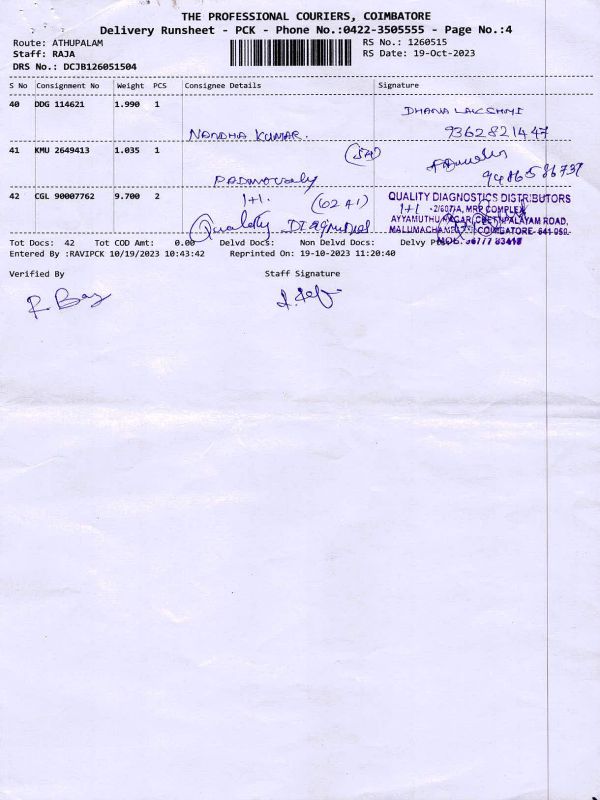 THE PROFESSIONAL COURIERS, COIMBATORE
Delivery Runsheet - PCK - Phone No.:0422-3505555 - Page No.:4
Route: ATHUPALAM RS No.: 1260515
Staff: RAJA RS Date: 19-Oct-2023
DRS No.: DCJB126051504
S No Consignment No Weight PCS Consignee Details Signature
40 DDG 114621 1.990 1 DHANA LAKSHMI
NANDHA KUMAR. 9362821447
41 KMU 2649413 1.035 1 (SA)
9486586737
42 CGL 90007762 9.700 2 1+1. (6241) QUALITY DIAGNOSTICS DISTRIBUTORS
1+1 MRP COMPLEX
Quality AYYAMUTHU NAGAR, CHETTIPALAYAM ROAD,
COIMBATORE- 641 050.
Tot Docs: 42 Tot COD Amt: 0.00 Delvd Docs: Non Delvd Docs: Delvy
Entered By :RAVIPCK 10/19/2023 10:43:42 Reprinted On: 19-10-2023 11:20:40
Verified By Staff Signature